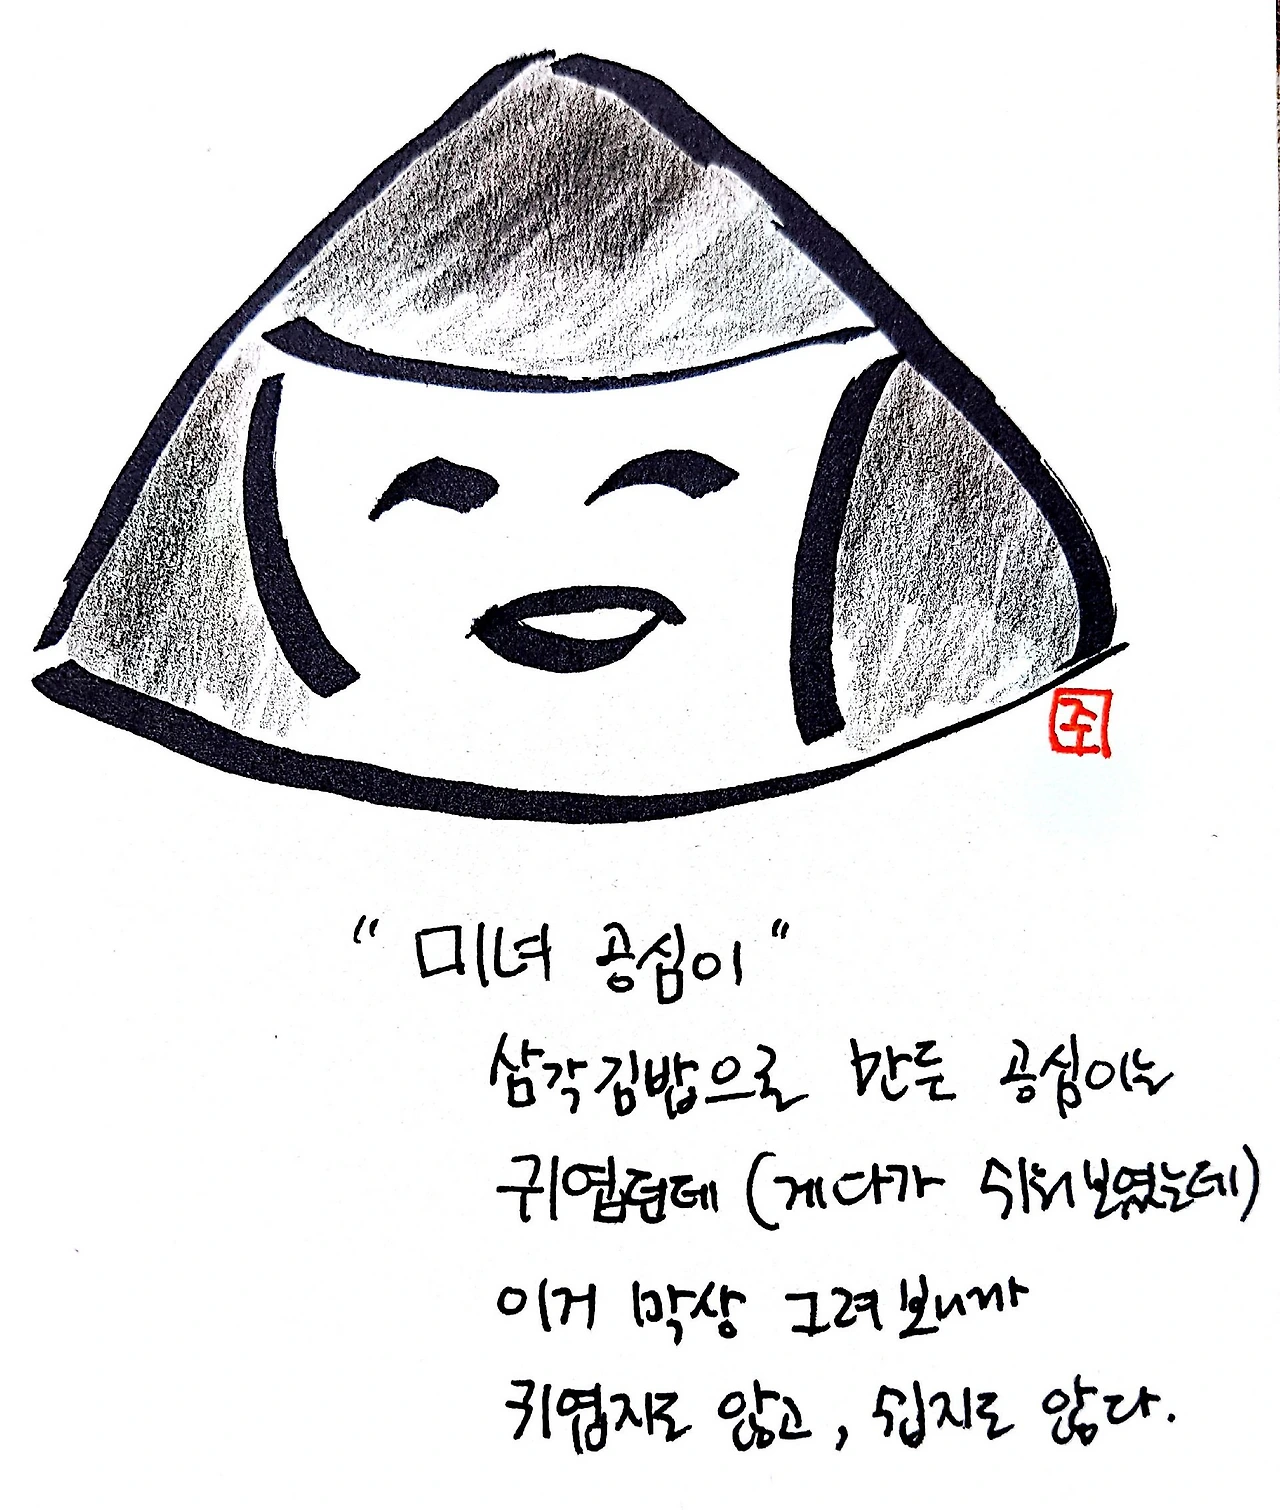 조
"미녀 공심이"
삼각김밥으로 만든 공심이는
귀엽던데 (게다가 쉬워보였는데)
이거 막상 그려보니까
귀엽지도 않고, 쉽지도 않다.